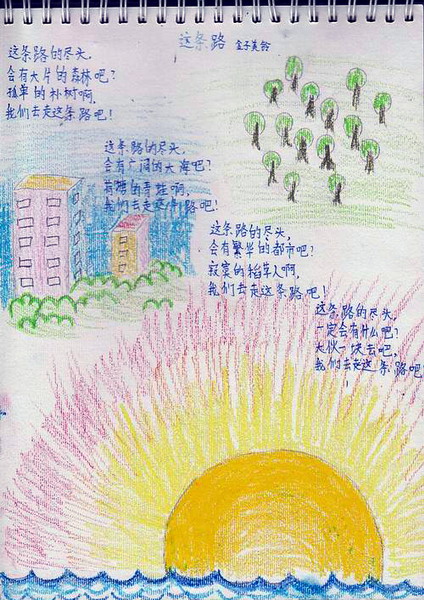 这条路 金子美铃
这条路的尽头,
会有大片的森林吧?
孤单的朴树啊,
我们去走这条路吧!
这条路的尽头,
会有广阔的大海吧?
我们去走这条路吧!
这条路的尽头,
会有繁华的都市吧?
寂寞的稻草人啊,
我们去走这条路吧!
这条路的尽头,
一定会有什么吧?
大伙一块去吧,
我们去走这条路吧